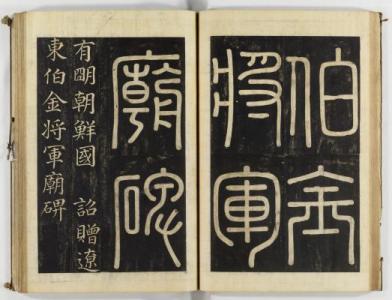 伯金
將軍
廟碑
有朙朝鮮國 詔贈遼
東伯金將軍廟碑